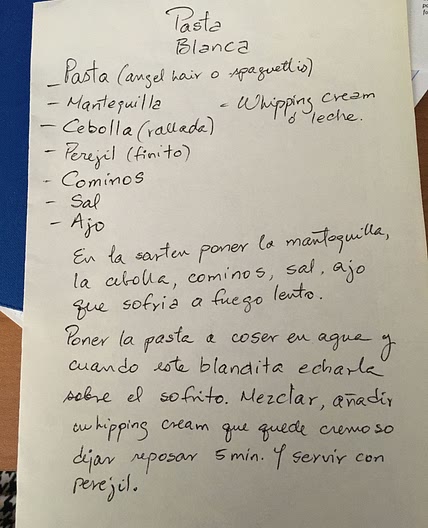 Pasta
Blanca
- Pasta (angel hair o spaguettis)
- Mantequilla
- Whipping Cream
ó leche.
- Cebolla (rallada)
- Perejil (finito)
- Cominos
- Sal
- Ajo
En la sarten poner la mantequilla,
la cebolla, cominos, sal, ajo
que sofria a fuego lento.
Poner la pasta a coser en agua y
cuando este blandita echarla
sobre el sofrito. Mezclar, añadir
whipping cream que quede cremoso
dejar reposar 5 min. Y servir con
perejil.